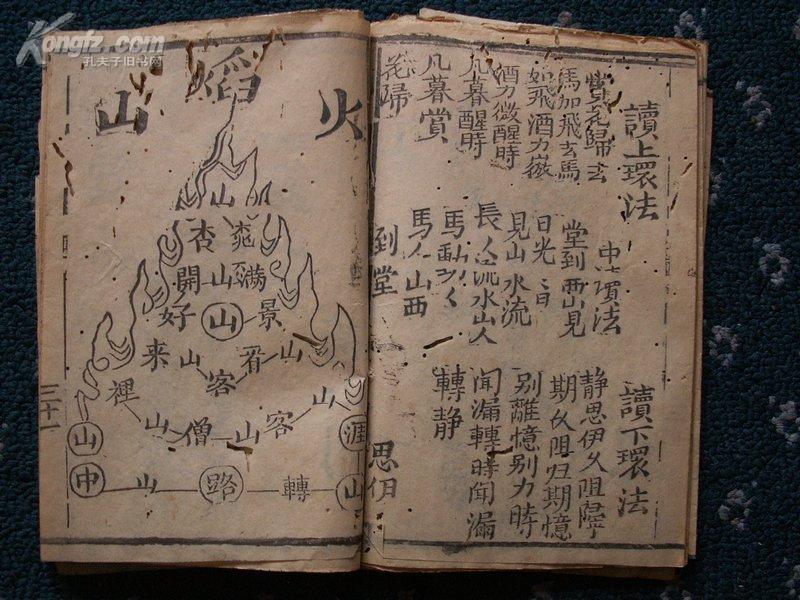 讀上環法
賞花歸去
馬加飛去馬
如飛酒力微
酒力微醒時
凡暮醒時
凡暮賞
花歸
中環法
堂到西見
日光日
見山水流
長人流水山人
馬動
馬人山西
到堂
讀下環法
静思伊久阻歸
期久阻归期憶
别離憶别力時
聞漏轉時聞漏
轉静
思伊
火熖山
山
杏
開山满
好山景
来山客看山
裡山僧山客山
山涯
中山路轉山
三十一
Kongfz.com
孔夫子旧书网